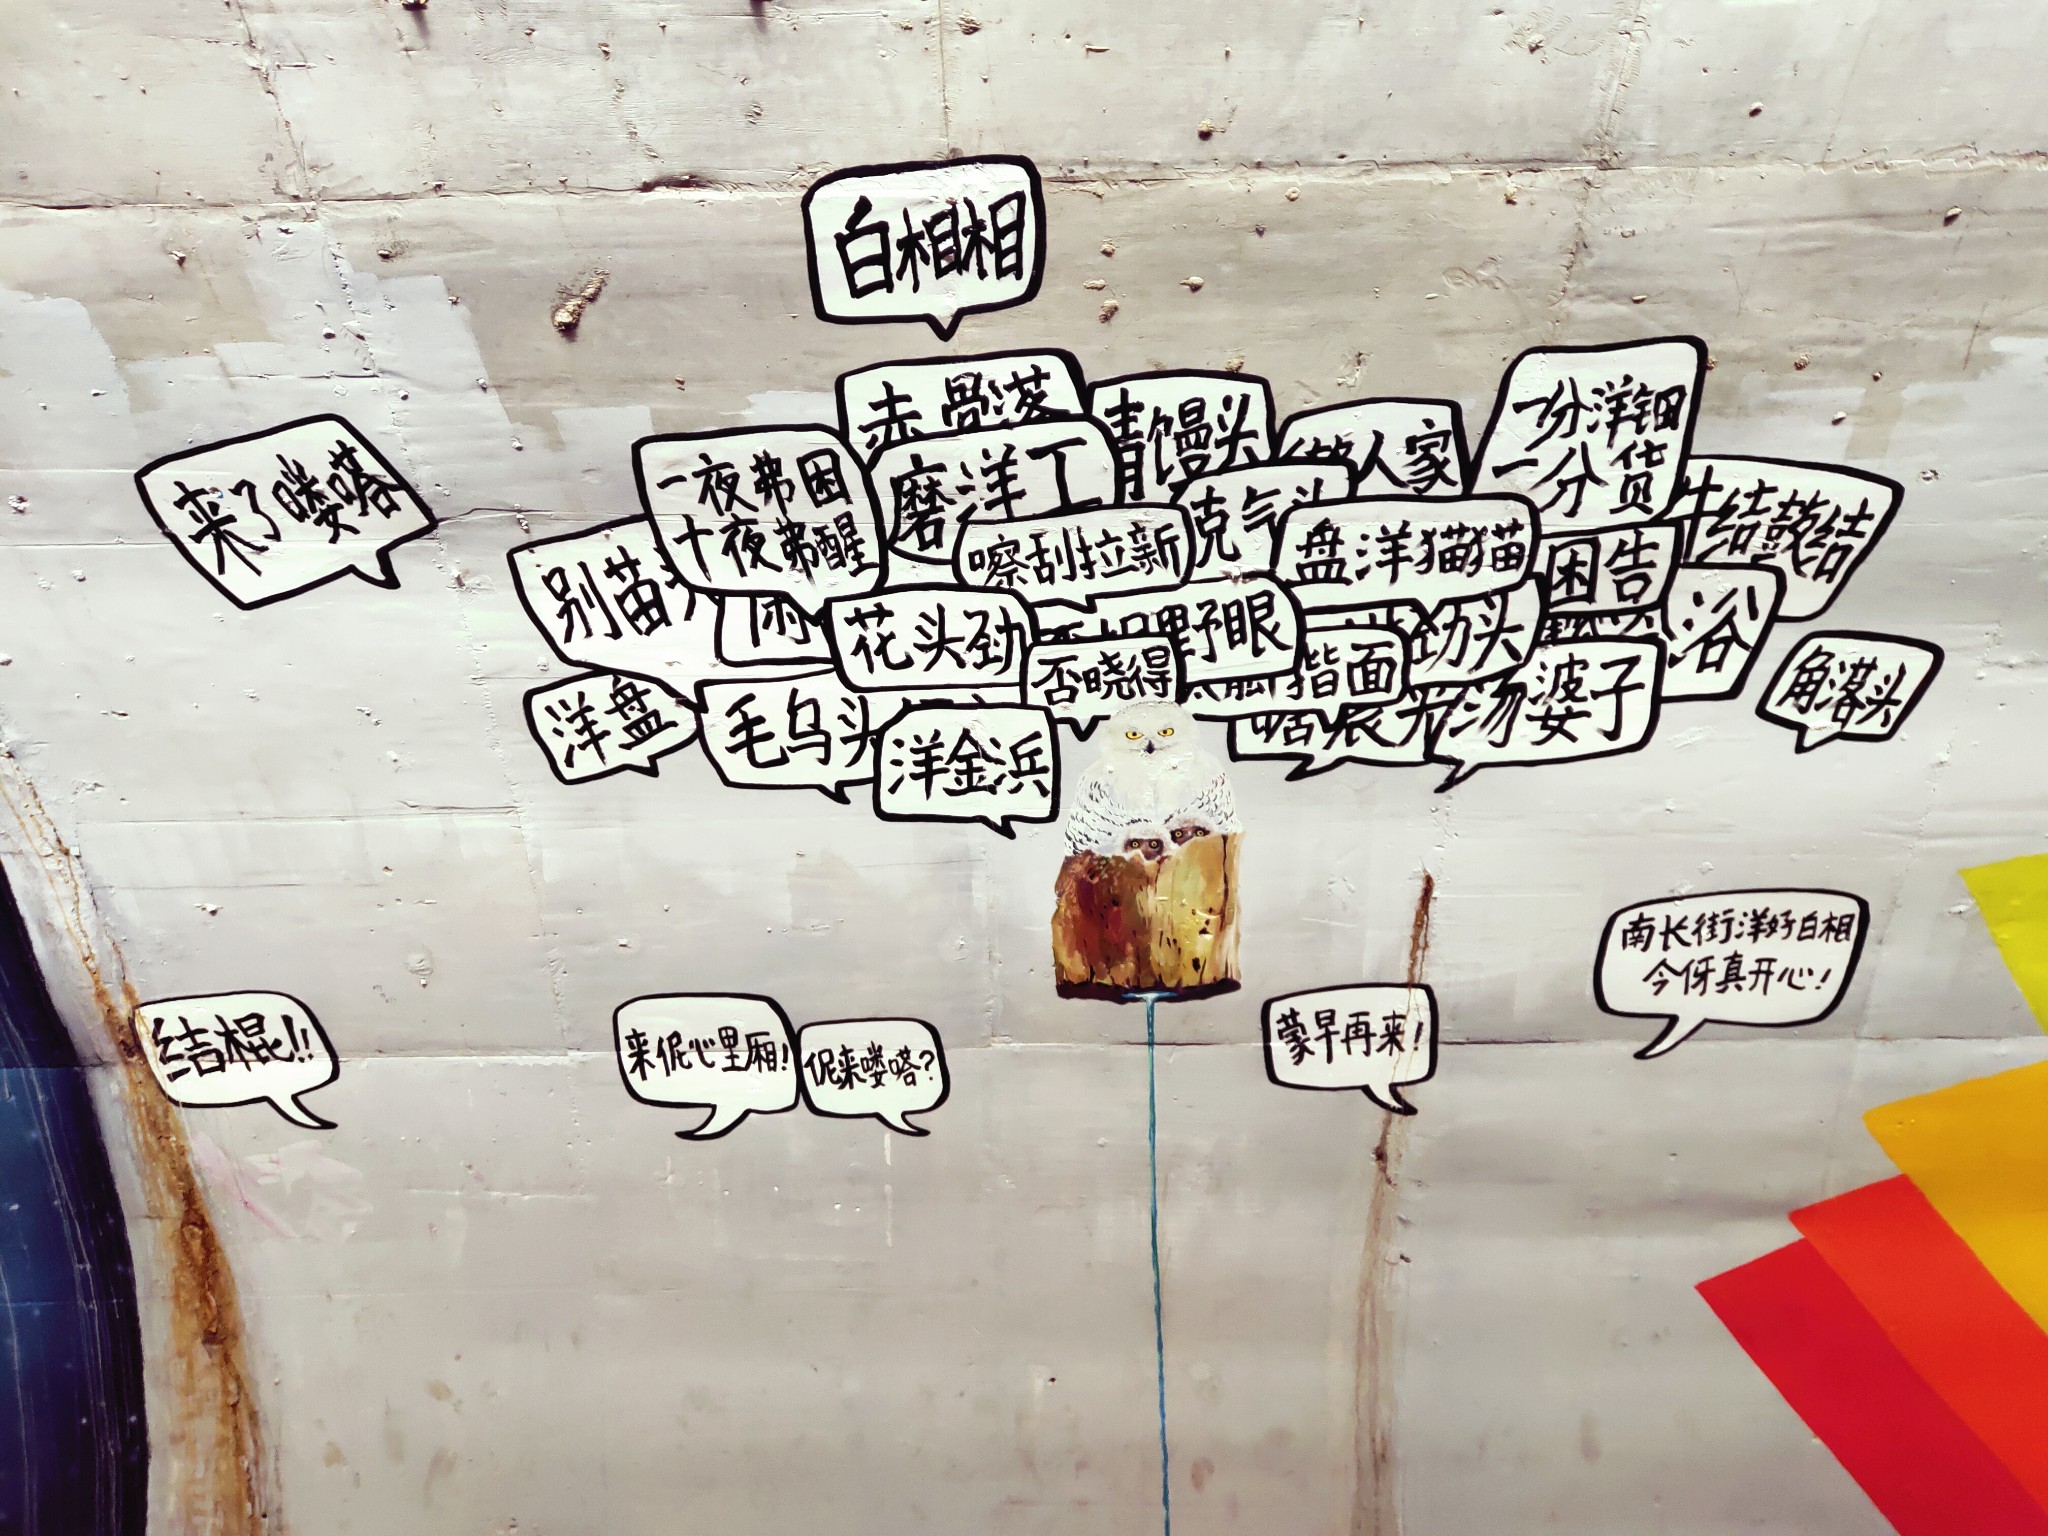 白相相
赤骨落
青馒头
做人家
一分洋钿
一分货
来了喽嗒
一夜弗困
十夜弗醒
磨洋工
克气头
牛结鼓结
别苗头
嚓刮拉新
盘洋猫猫
困告
花头劲
野眼
劲头
浴
否晓得
揩面
汤婆子
角落头
洋盘
毛乌头
洋金浜
南长街洋好白相
今伢真开心!
结棍!!
来伲心里厢!
伲来喽嗒?
蒙早再来!